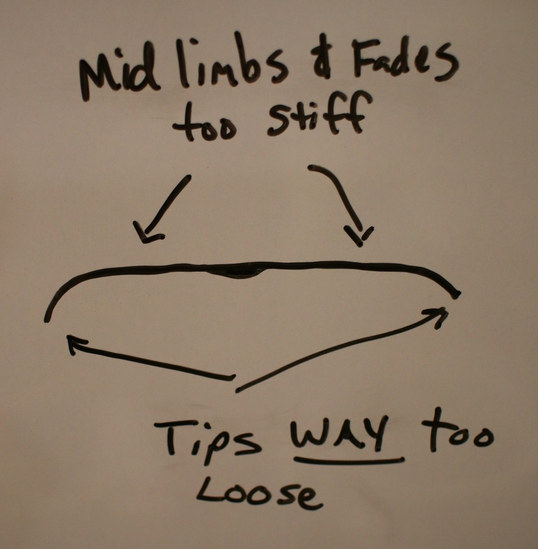 Mid limbs & Fades
too stiff
Tips WAY too
Loose